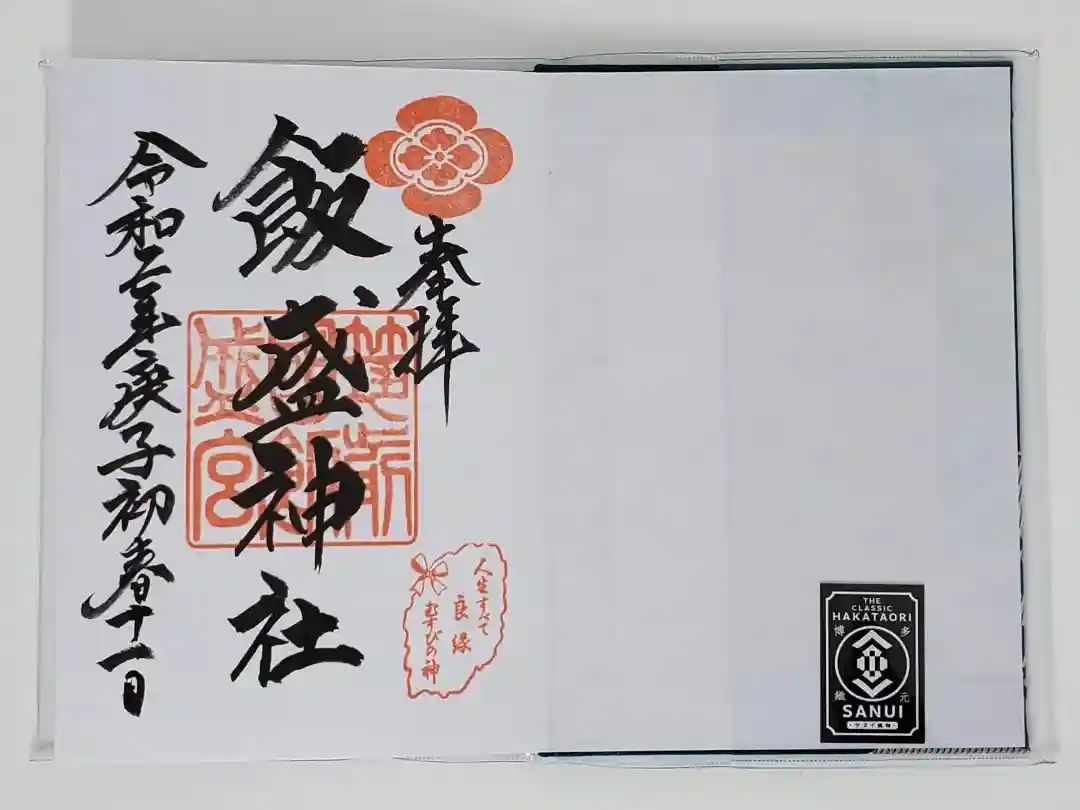 奉拝
飯盛神社
令和二年庚子初春十一日
筑前
國飯
盛宮
人生すべて
良縁
むすびの神
THE
CLASSIC
HAKATAORI
博多
織元
SANUI
・サヌイ織物・